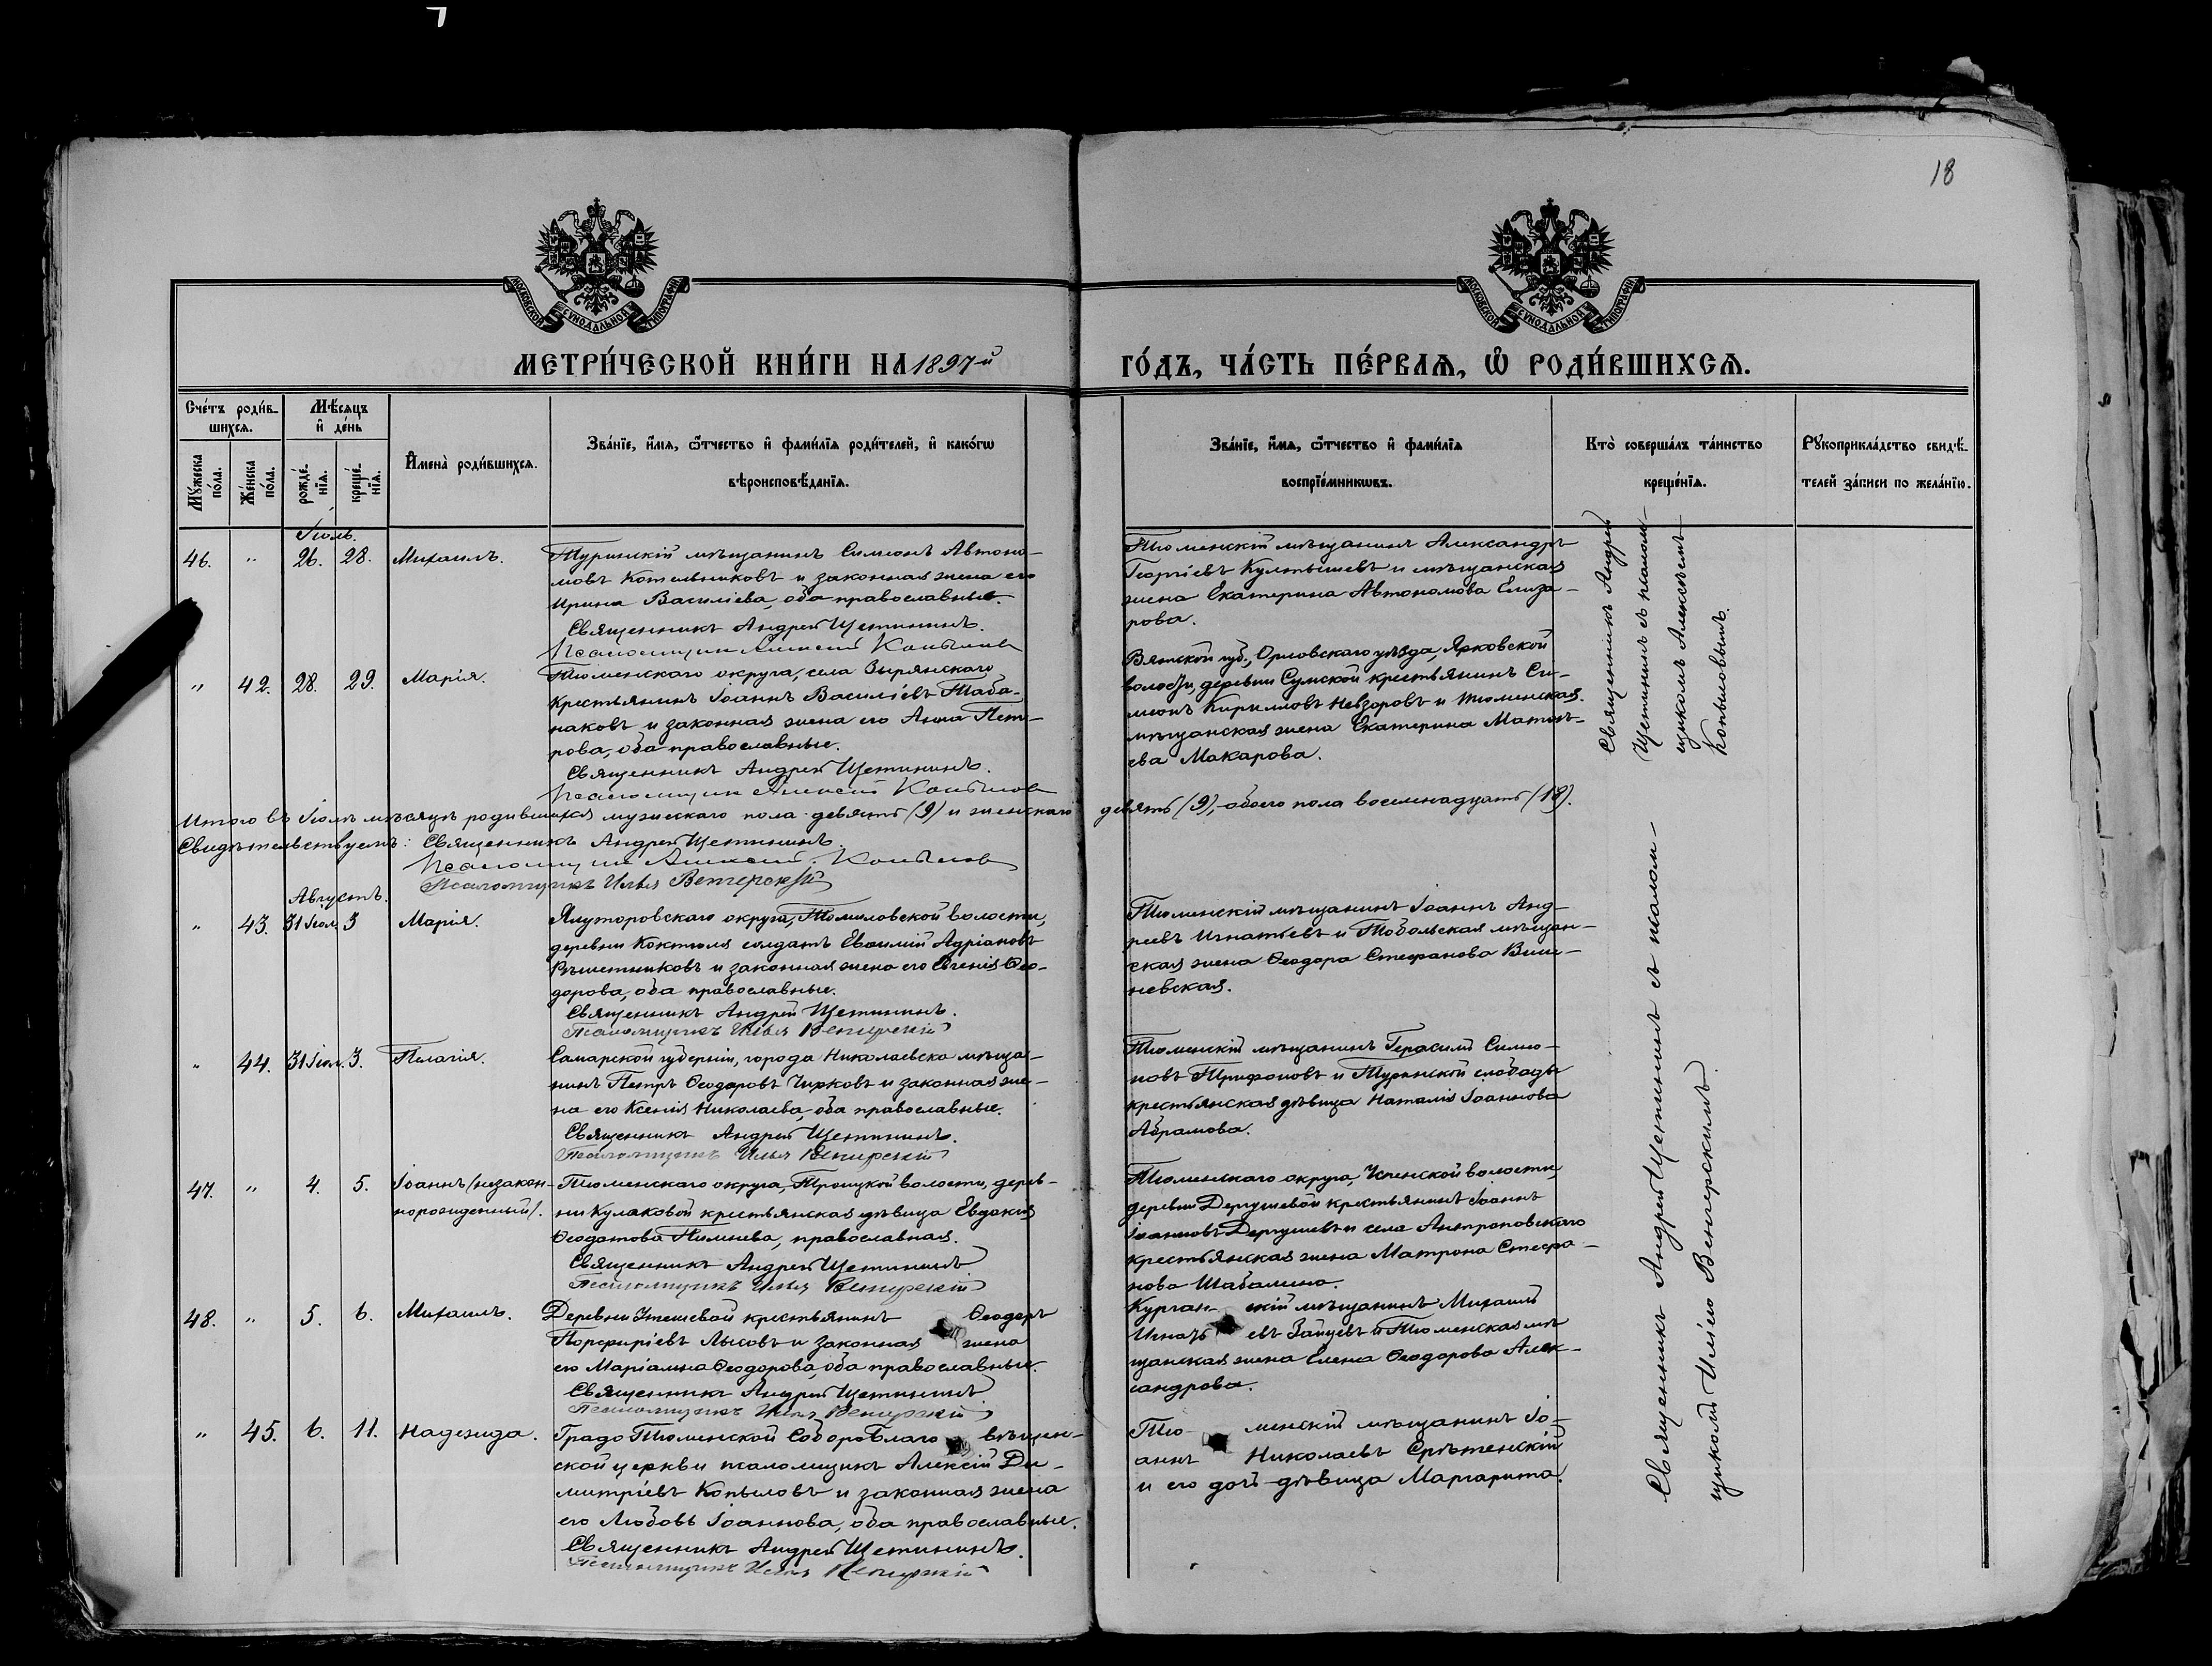 18
МОСКОВСКОЙ СѴНОДАЛЬНОЙ ТИПОГРАФІИ
МОСКОВСКОЙ СѴНОДАЛЬНОЙ ТИПОГРАФІИ
МЕТРИ́ЧЕСКОЙ КНИ́ГИ НА 1897й ГО́ДЪ, ЧА́СТЬ ПЕ́РВАѦ, Ѽ РОДИ́ВШИХСѦ.
Сче́тъ роди́в-
шихсѧ.
Мѣ́сѧцъ
и҆ де́нь
Мꙋ́жеска
по́ла.
Же́нска
по́ла.
рожде́-
нїѧ.
креще́-
нїѧ.
И҆мена̀ роди́вшихсѧ.
Зва́нїе, и҆́мѧ, ѻ҆́тчество и҆ фами́лїѧ роди́телей, и҆ како́гѡ
вѣроисповѣ́данїѧ.
Зва́нїе, и҆́мѧ, ѻ҆́тчество и҆ фами́лїѧ
воспрїе́мникѡвъ.
Кто̀ соверша́лъ та́инство
креще́нїѧ.
Рꙋкоприкла́дство свидѣ́-
телей за́писи по жела́нїю.
Іюль.
46. " 26. 28. Михаилъ.
Туринскій мѣщанинъ Симеонъ Автоно-
мовъ Котельниковъ и законная жена его
Ирина Василіева, оба православные.
Священникъ Андрей Щетининъ.
Псаломщикъ Алексій Копыловъ
Тюменскій мѣщанинъ Александръ
Георгіевъ Култышевъ и мѣщанская
жена Екатерина Автономова Елиза-
рова.
Священникъ Андрей
Щетининъ съ псалом-
щикомъ Алексѣемъ
Копыловымъ.
" 42. 28. 29. Марія.
Тюменскаго округа, села Зырянскаго
крестьянинъ Іоаннъ Василіевъ Таба-
наковъ и законная жена его Анна Пет-
рова, оба православные.
Священникъ Андрей Щетининъ.
Псаломщикъ Алексій Копыловъ
Вятской губ., Орловскаго уѣзда, Ярковской
волости, деревни Сумской крестьянинъ Си-
меонъ Кирилловъ Невзоровъ и тюменская
мѣщанская жена Екатерина Матѳѣ-
ева Макарова.
Итого въ Іюлѣ мѣсяцѣ родившихся мужескаго пола девять (9) и женскаго девять (9), обоего пола восемнадцать (18).
Свидѣтельствуемъ: Священникъ Андрей Щетининъ.
Псаломщикъ Алексій Копыловъ
Псаломщикъ Илья Венгерскій
Августъ.
" 43. 31 Іюл. 3 Марія.
Ялуторовскаго округа, Томиловской волости,
деревни Коктюля солдатъ Евѳимій Адріановъ
Рѣшетниковъ и законная жена его Евгенія Ѳео-
дорова, оба православные.
Священникъ Андрей Щетининъ.
Псаломщикъ Илья Венгерскій
Тюменскій мѣщанинъ Іоаннъ Анд-
реевъ Игнатьевъ и Тобольская мѣщан-
ская жена Ѳеодора Стефанова Виш-
невская.
Священникъ Андрей Щетининъ съ псалом-
щикомъ Иліею Венгерскимъ.
" 44. 31 Іюл. 3. Пелагія.
Самарской губерніи, города Николаевска мѣща-
нинъ Петръ Ѳеодоровъ Чирковъ и законная же-
на его Ксенія Николаева, оба православные.
Священникъ Андрей Щетининъ.
Псаломщикъ Илья Венгерскій
Тюменскій мѣщанинъ Герасимъ Симео-
новъ Трифоновъ и Туринской слободы
крестьянская дѣвица Наталія Іоаннова
Абрамова.
47. " 4. 5. Іоаннъ (незакон-
норожденный).
Тюменскаго округа, Троицкой волости, дерев-
ни Кулаковой крестьянская дѣвица Евдокія
Ѳеодотова Пимнева, православная.
Священникъ Андрей Щетининъ
Псаломщикъ Илья Венгерскій
Тюменскаго округа, Успенской волости,
деревни Дерушевой крестьянинъ Іоаннъ
Іоанновъ Дерушевъ и села Антроповскаго
крестьянская жена Матрона Стефа-
нова Шабалина.
48. " 5. 6. Михаилъ.
Деревни Утешевой крестьянинъ Ѳеодоръ
Порфиріевъ Лысовъ и законная жена
его Маріамна Ѳеодорова, оба православные.
Священникъ Андрей Щетининъ
Псаломщикъ Илья Венгерскій
Курганскій мѣщанинъ Михаилъ
Игнатьевъ Зайцевъ и Тюменская мѣ-
щанская жена Елена Ѳеодорова Алек-
сандрова.
" 45. 6. 11. Надежда.
Градо Тюменской Соборо Благовѣщен-
ской церкви псаломщикъ Алексій Ди-
митріевъ Копыловъ и законная жена
его Любовь Іоаннова, оба православные.
Священникъ Андрей Щетининъ.
Псаломщикъ Илья Венгерскій
Тюменскій мѣщанинъ Іо-
аннъ Николаевъ Срѣтенскій
и его дочь дѣвица Маргарита.